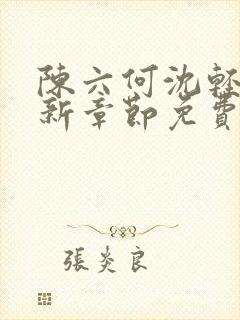 陳六何沈輕
新章節免費
張炎良